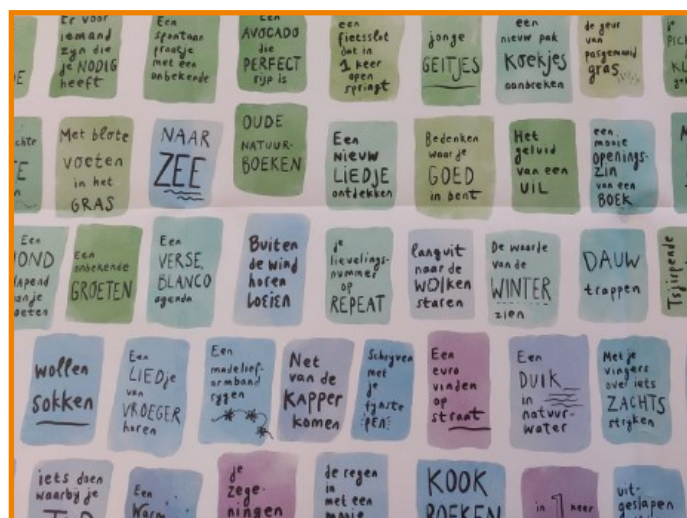 Er voor
iemand
zyn die
je NODIG
heeft
Een
spontaan
praatje
met een
onbekende
Een
AVOCADO
die
PERFECT
ryp is
een
fietsslot
dat in
1 keer
open
springt
jonge
GEITJES
een
nieuw pak
KOEKJES
aanbreken
de geur
van
pasgemaaid
gras
Met blote
voeten
in het
GRAS
NAAR
ZEE
OUDE
NATUUR-
BOEKEN
Een
NIEUW
LIEDJE
ontdekken
Bedenken
waar je
GOED
in bent
Het
geluid
van een
UIL
een
mooie
openings-
zin
van een
BOEK
Een
onbekende
GROETEN
Een
VERSE,
BLANCO
agenda
Buiten
de wind
horen
LOEIEN
je
lievelings-
nummer
op
REPEAT
languit
naar de
WOLken
staren
De waarde
van de
WINTER
zien
DAUW
trappen
Tsjirpende
wollen
sokken
Een
LIEDje
van
VROEGER
horen
Een
madelief-
armband
rygen
Net
van de
KAPPER
komen
Schryven
met
je
fynste
PEN
Een
euro
vinden
op
straat
Een
DUIK
in
natuur-
water
Met je
vingers
over iets
ZACHTS
stryken
iets doen
waarby je
Een
Warm
je
zege-
ningen
de regen
in
met een
mooie
KOOK
BOEKEN
in 1 keer
uit-
geslapen